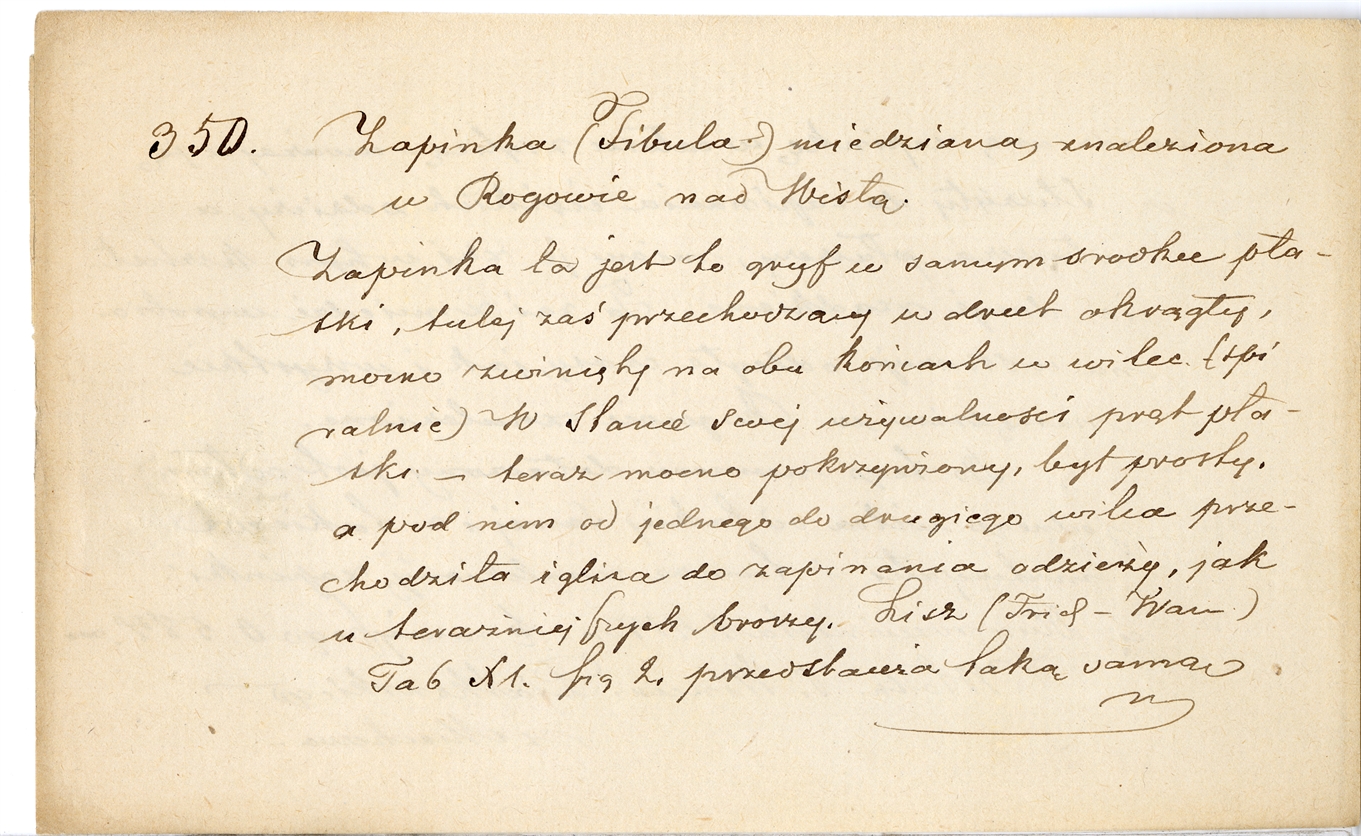 350. Zapinka (Fibula.) miedziana, znaleziona
w Rogowie nad Wisłą.
Zapinka ta jest to gryf w samym srodku pła-
ski, tutej zaś przechodzący w drut okrągły,
mocno zwinięty na obu końcach w wilec. (spi
ralnie) W Stanie swej używalności pręt pła-
ski – teraz mocno pokrzywiony, był prosty,
a pod nim od jednego do drugiego wilca prze-
chodziła iglica do zapinania odzieży, jak
u teraźniejszych broszy. Lisz (Frid – Wau.)
Tab XI. fig 2. przedstawia taką samą